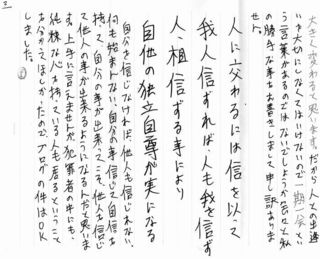 大きく変わると思います。だから人との出逢
いを大切にしなくてはいけないので一期一会とい
う言葉があるのではないでしょうか。色々と私
の勝手な事をお書きしまして申し訳ありま
せん。
人に交わるには信を以って
我人信ずれば、人も我を信ず
人々相信ずる事により
自他の独立自尊が実になる
自分を信じなければ他人も信じれない、
何も始まらない、自分の事信じて自信を
持って自分の事が出来
て他人の事が出来るようになるんだと思いま
す。上手に言えませんが、犯罪者の中にも、
純粋な心を持っている人も居るということ
を分かってほしかったので、ブログの件はOK
しました。